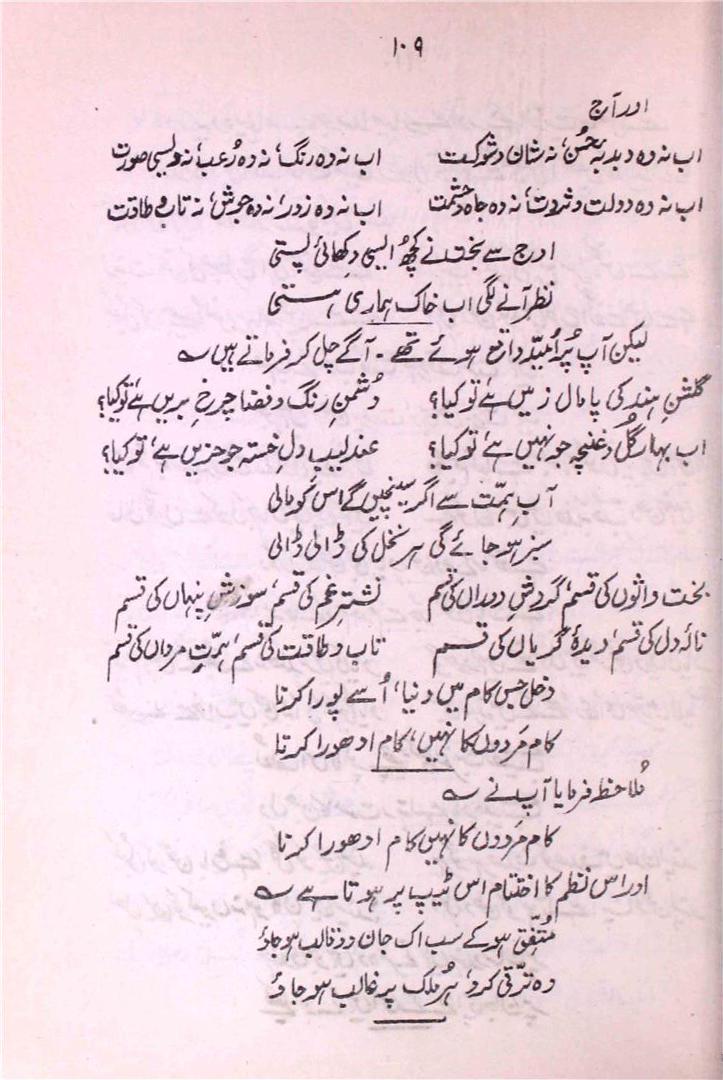 ۱۰۹
اور آج
اب نہ وہ دبدبۂ حُسن، نہ شان و شوکت اب نہ وہ رنگ، نہ وہ رُعب، نہ ویسی صورت
اب نہ وہ دولت و ثروت، نہ وہ جاہ و حشمت اب نہ وہ زور، نہ وہ جوش، نہ تاب و طاقت
اوج سے بخت نے کچھ ایسی دکھائی پستی
نظر آنے لگی اب خاک ہماری ہستی
لیکن آپ پُر اُمید واقع ہوئے تھے ۔ آگے چل کر فرماتے ہیں ؎
گلشنِ ہند کی پامال زمیں ہے تو کیا؟ دُشمنِ رنگ و فضا چرخِ بریں ہے تو کیا؟
اب بہارِ گل و غنچہ جو نہیں ہے تو کیا؟ عندلیبِ دل خستہ جو حزیں ہے، تو کیا؟
آبِ ہمّت سے اگر سینچیں گے اس کو مالی
سبز ہو جائے گی ہر نخل کی ڈالی ڈالی
بخت واژوں کی قسم، گردشِ دوراں کی قسم نشترِ غم کی قسم، سوزشِ پنہاں کی قسم
نالۂ دل کی قسم، دیدۂ گریاں کی قسم تاب و طاقت کی قسم، ہمّتِ مرداں کی قسم
دخل جس کام میں دنیا، اُسے پورا کرنا
کام مَردوں کا نہیں، کام ادھورا کرنا
مُلاحظہ فرمایا آپ نے ؎
کام مَردوں کا نہیں کام ادھورا کرنا
اور اس نظم کا اختتام اس ٹیپ پر ہوتا ہے ؎
مُتّفِق ہو کے سب اک جان دو قالب ہو جاؤ
وہ ترّقی کرو، ہر مُلک پر غالب ہو جاؤ